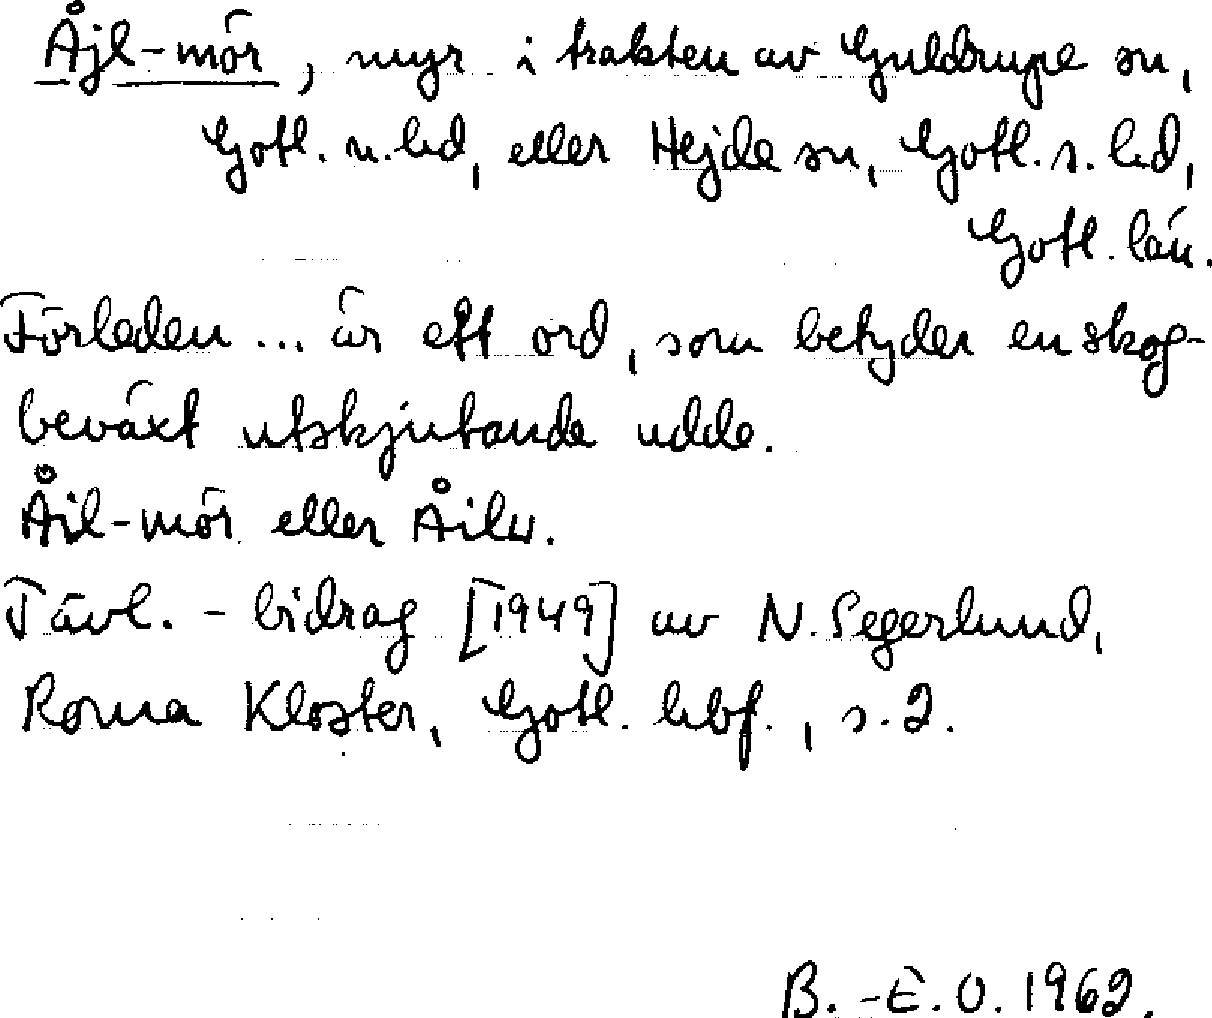 Åjl-mör, myr i trakten av Guldrupe sn,
Gotl. n. hd, eller Hejde sn, Gotl. s. hd,
Gotl. län.
Förleden ... är ett ord, som betyder en skog-
beväxt utskjutande udde.
Åil-mör eller Åilu.
Tävl. - bidrag [1949] av N. Segerlund,
Roma Kloster, Gotl. hbf., s. 2.
B.-E. O. 1962.